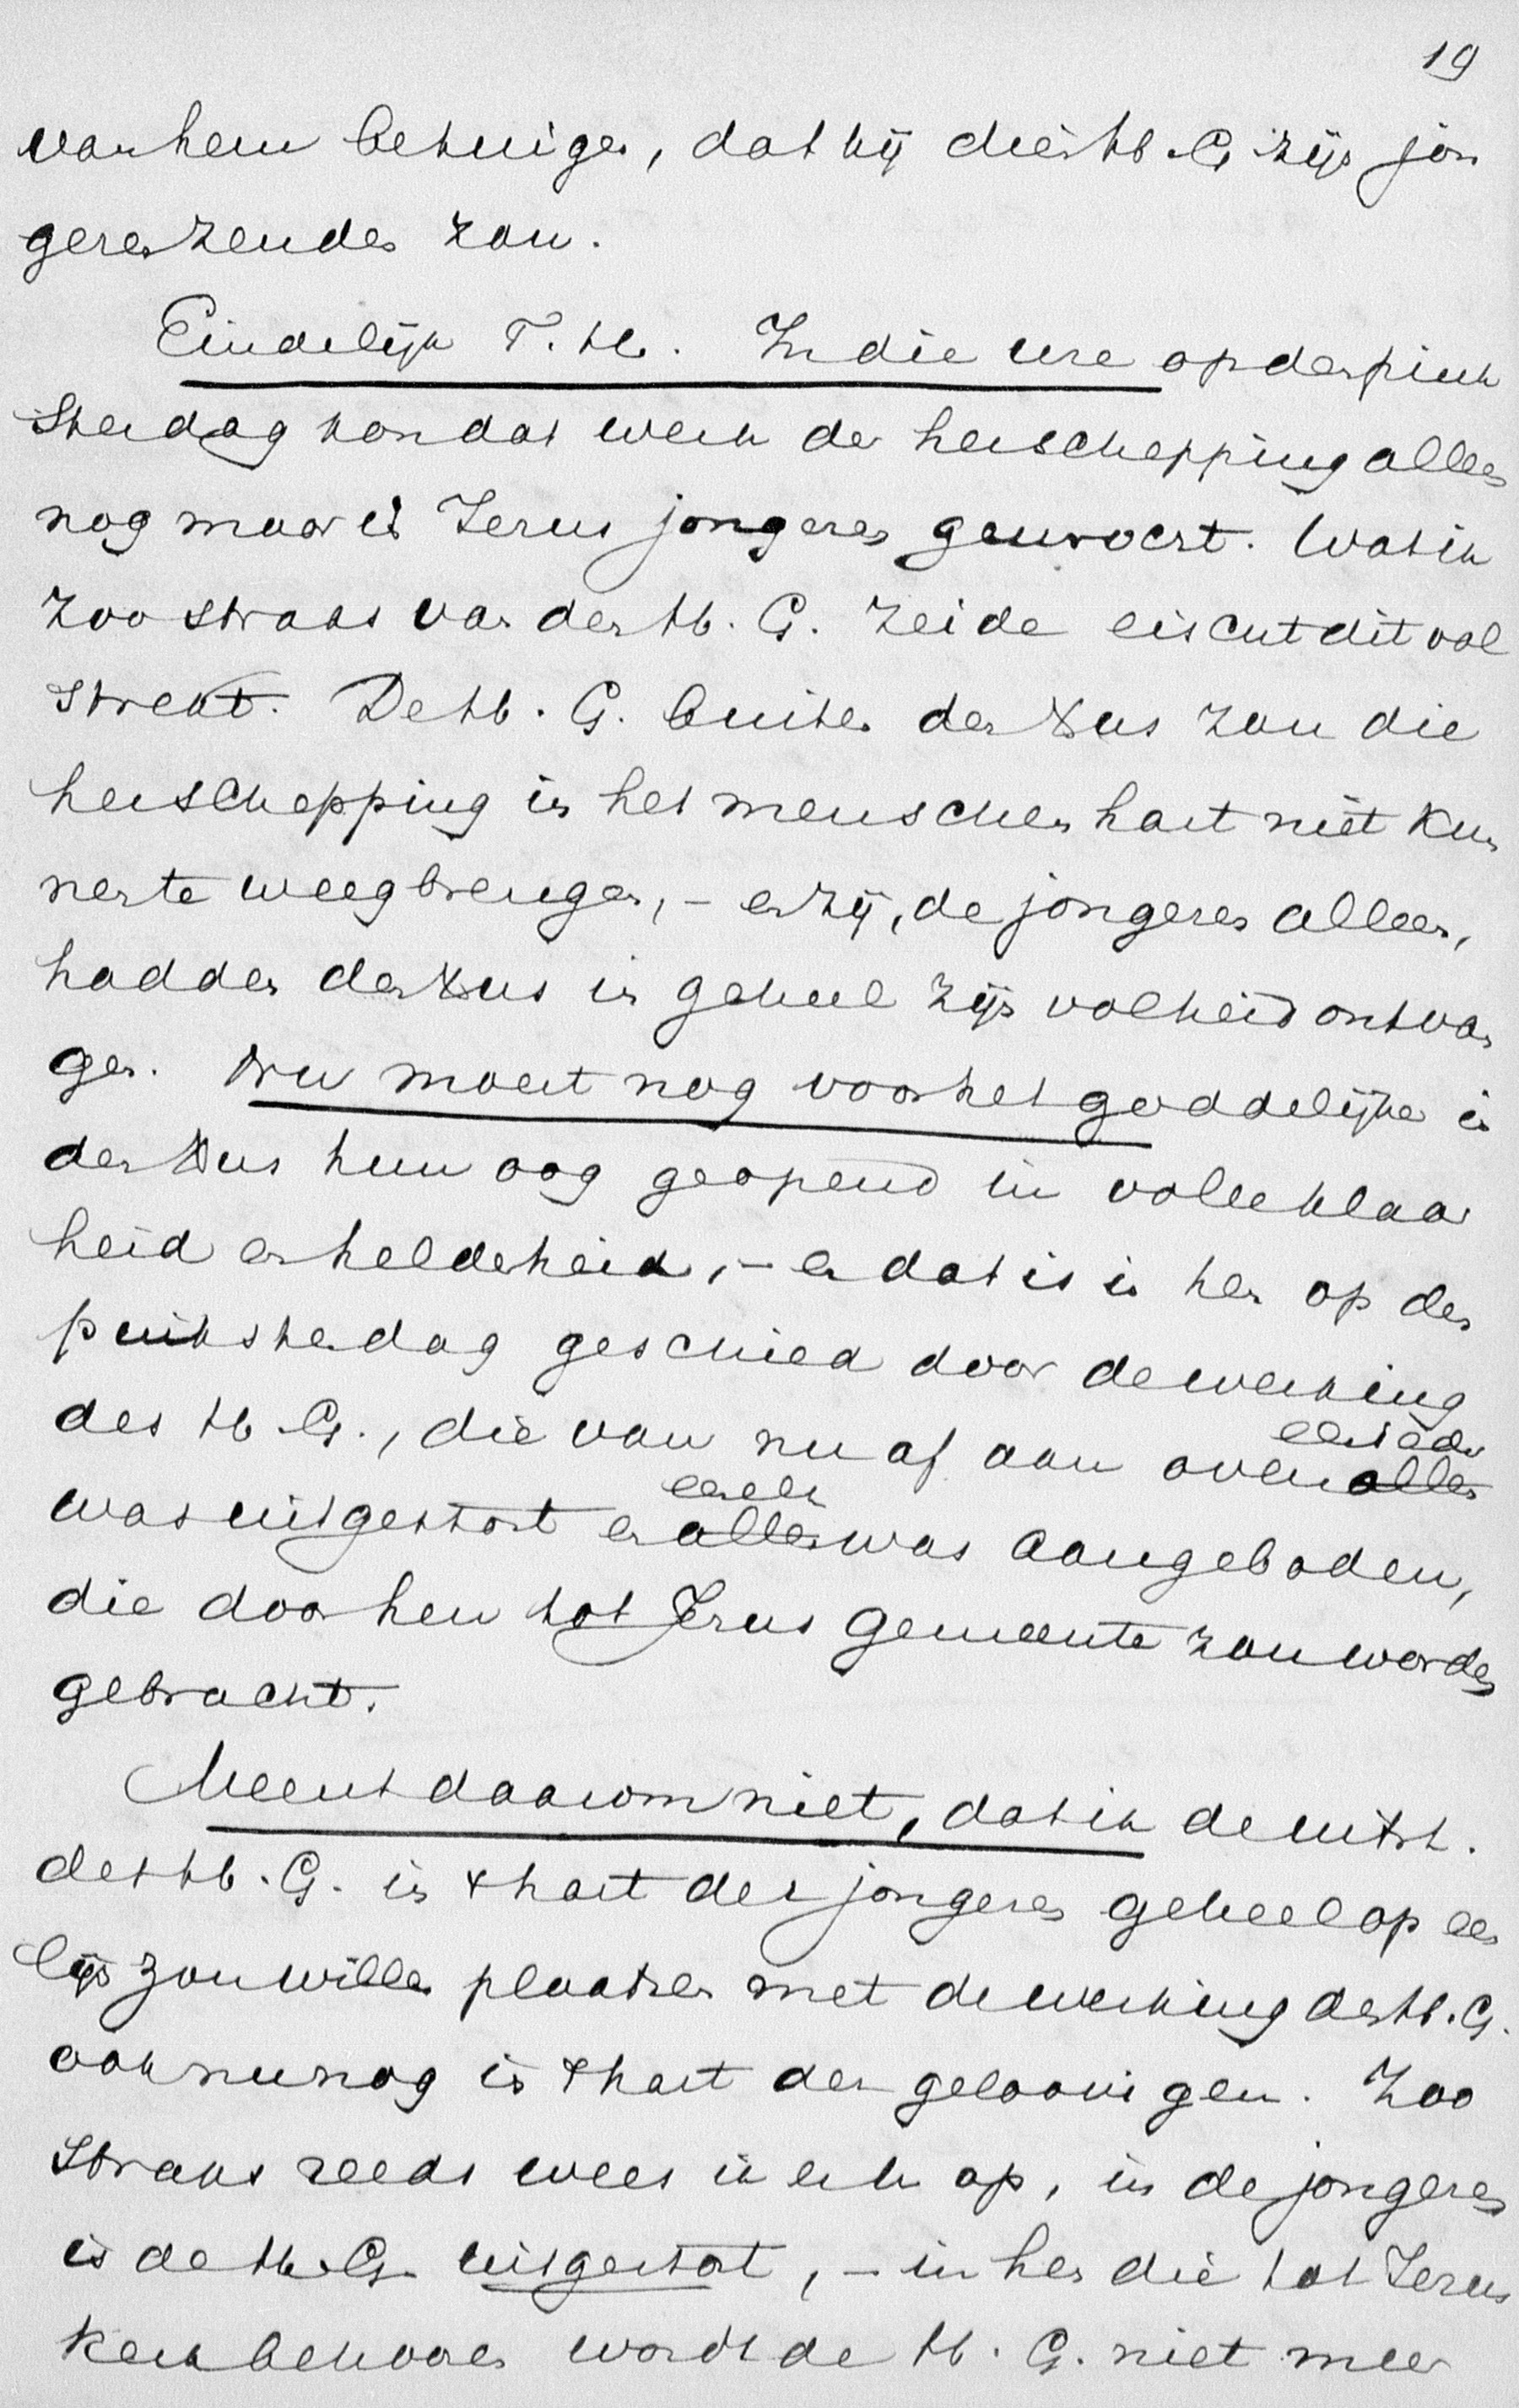 19
van hem betuigen, dat hij dien H. G zijn jon
geren zenden zou.
Eindelijk T. H. In die ure op den pink
sterdag kon dat werk der herschepping alleen
nog maar in Jezus jongeren gewrocht. Wat ik
zoo straks van den H. G. zeide eischt dit vol
strekt. De H. G. buiten den Xus zou die
herschepping in het menschen hart niet kun
nen te weeg brengen, – en zij, de jongeren alleen,
hadden den Xus in geheel zijn volheid ontvan
gen. Nu moest nog voor het goddelijke in
den Xus hun oog geopend in volle klaar
heid en helderheid, – en dat is in hen op den
pinksterdag geschied door de werking
des H. G., die van nu af aan over allen
ieder
was uitgestort en allen was aangeboden,
die door hen tot Jezus gemeente zou worden
gebracht.
Meent daarom niet, dat ik de uitst.
des H. G. in 't hart der jongeren geheel op een
lijn zou willen plaatsen met de werking des H. G.
ook nu nog in 't hart der geloovigen. Zoo
straks reeds wees ik er u op, in de jongeren
is de H. G. uitgestort, – in hen die tot Jezus
kerk behooren wordt de H. G. niet meer